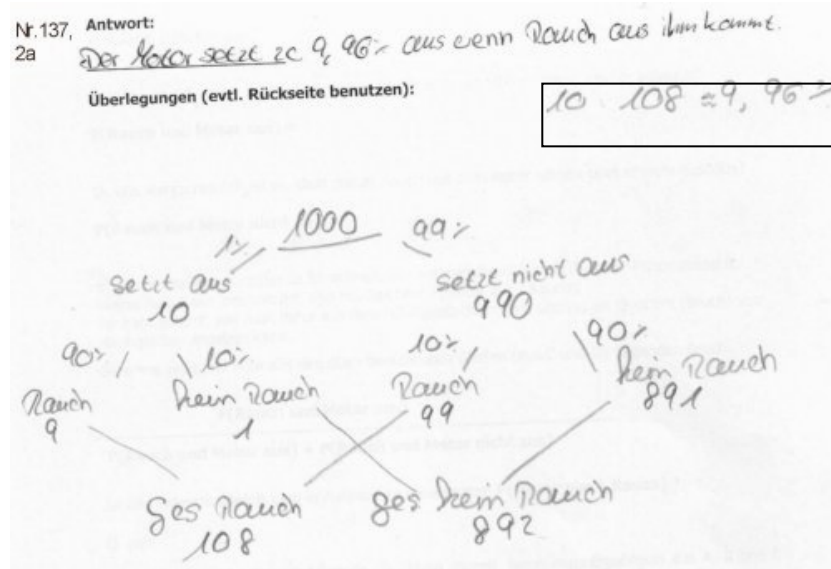 Nr.137, Antwort:
2a
Der Motor setzt zc 9,96% aus wenn Rauch aus ihm kommt.
Überlegungen (evtl. Rückseite benutzen):
10 : 108 ≈ 9,96%
1000
1% 99%
setzt aus setzt nicht aus
10 990
90% 10% 10% 90%
Rauch kein Rauch Rauch kein Rauch
9 1 99 891
ges Rauch ges kein Rauch
108 892